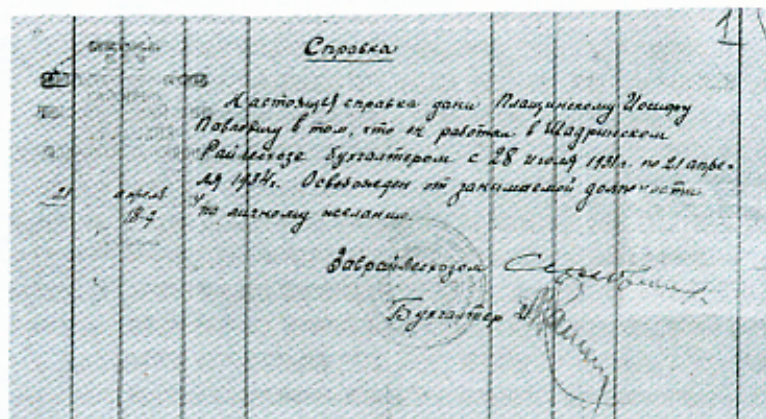 1
Справка
Настоящая справка дана Плащинскому Иосифу
Павловичу в том, что он работал в Шадринском
Райлесхозе бухгалтером с 28 июля 1931г. по 21 апре-
ля 1934г. Освобожден от занимаемой должности
по личному желанию.
21 апреля
Заврайлесхозом
Бухгалтер